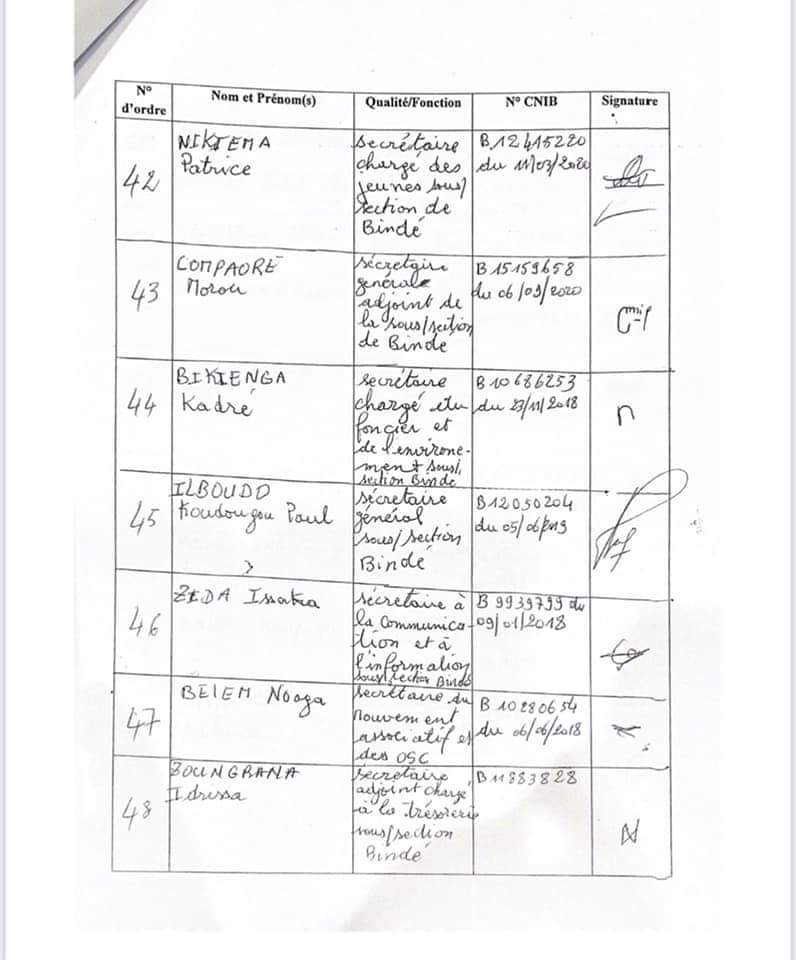 N° d'ordre
Nom et Prénom(s)
Qualité/Fonction
N° CNIB
Signature
42
NIKIEMA
Patrice
secrétaire
chargé des
jeunes sous/
section de
Bindé
B12415220
du 11/03/2020
43
COMPAORÉ
Morou
sécretaire
générale
adjoint de
la sous/section
de Binde
B15159658
du 06/09/2020
44
BIKIENGA
Kadré
secrétaire
chargé du
foncier et
de l'environe-
ment sous/
section Binde
B10686253
du 23/11/2018
45
ILBOUDO
Koudougou Paul
sécretaire
général
sous/section
Bindé
B12050204
du 05/06/2019
46
ZEDA Issaka
sécretaire à
la communica-
tion et à
l'information
sous/section Bindé
B 9939799 du
09/01/2018
47
BELEM Nooga
secrétaire du
mouvement
associatif et
des OSC
B 10280654
du 06/06/2018
48
ZOUNGRANA
Idrissa
secretaire
adjoint chargé
à la trésorerie
sous/section
Bindé
B11883828